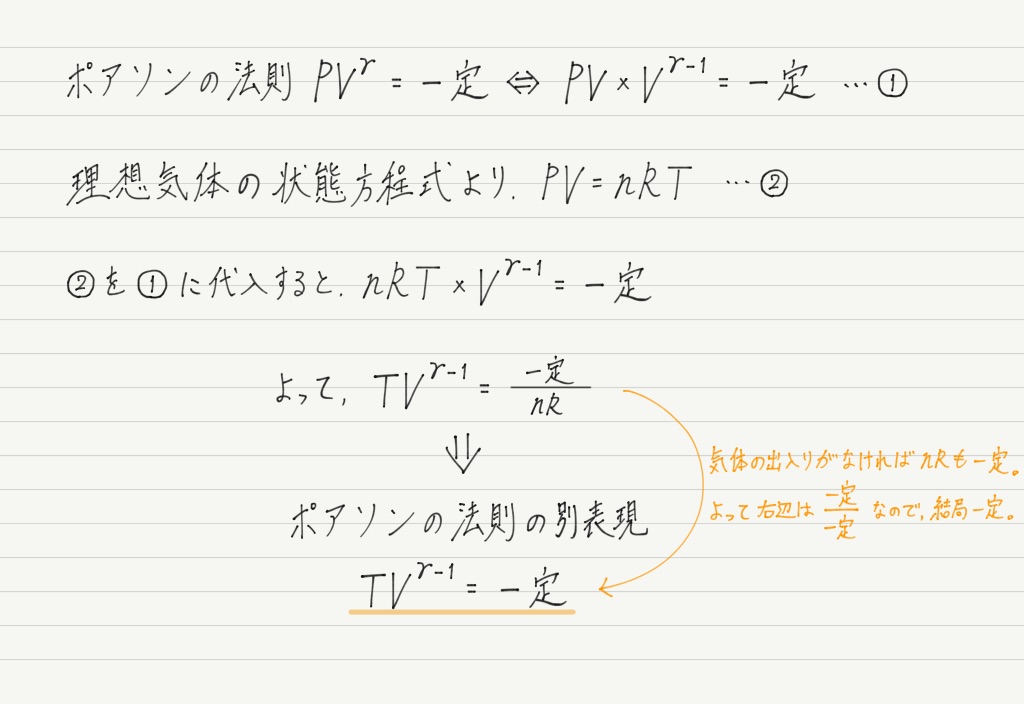 ポアソンの法則 PV^γ = 一定 ⇔ PV × V^γ-1 = 一定 … ①
理想気体の状態方程式より. PV = nRT … ②
②を①に代入すると. nRT × V^γ-1 = 一定
よって, TV^γ-1 = 一定/nR
⇓
気体の出入りがなければ nR も一定。
よって右辺は 一定/一定 なので, 結局一定。
ポアソンの法則の別表現
TV^γ-1 = 一定